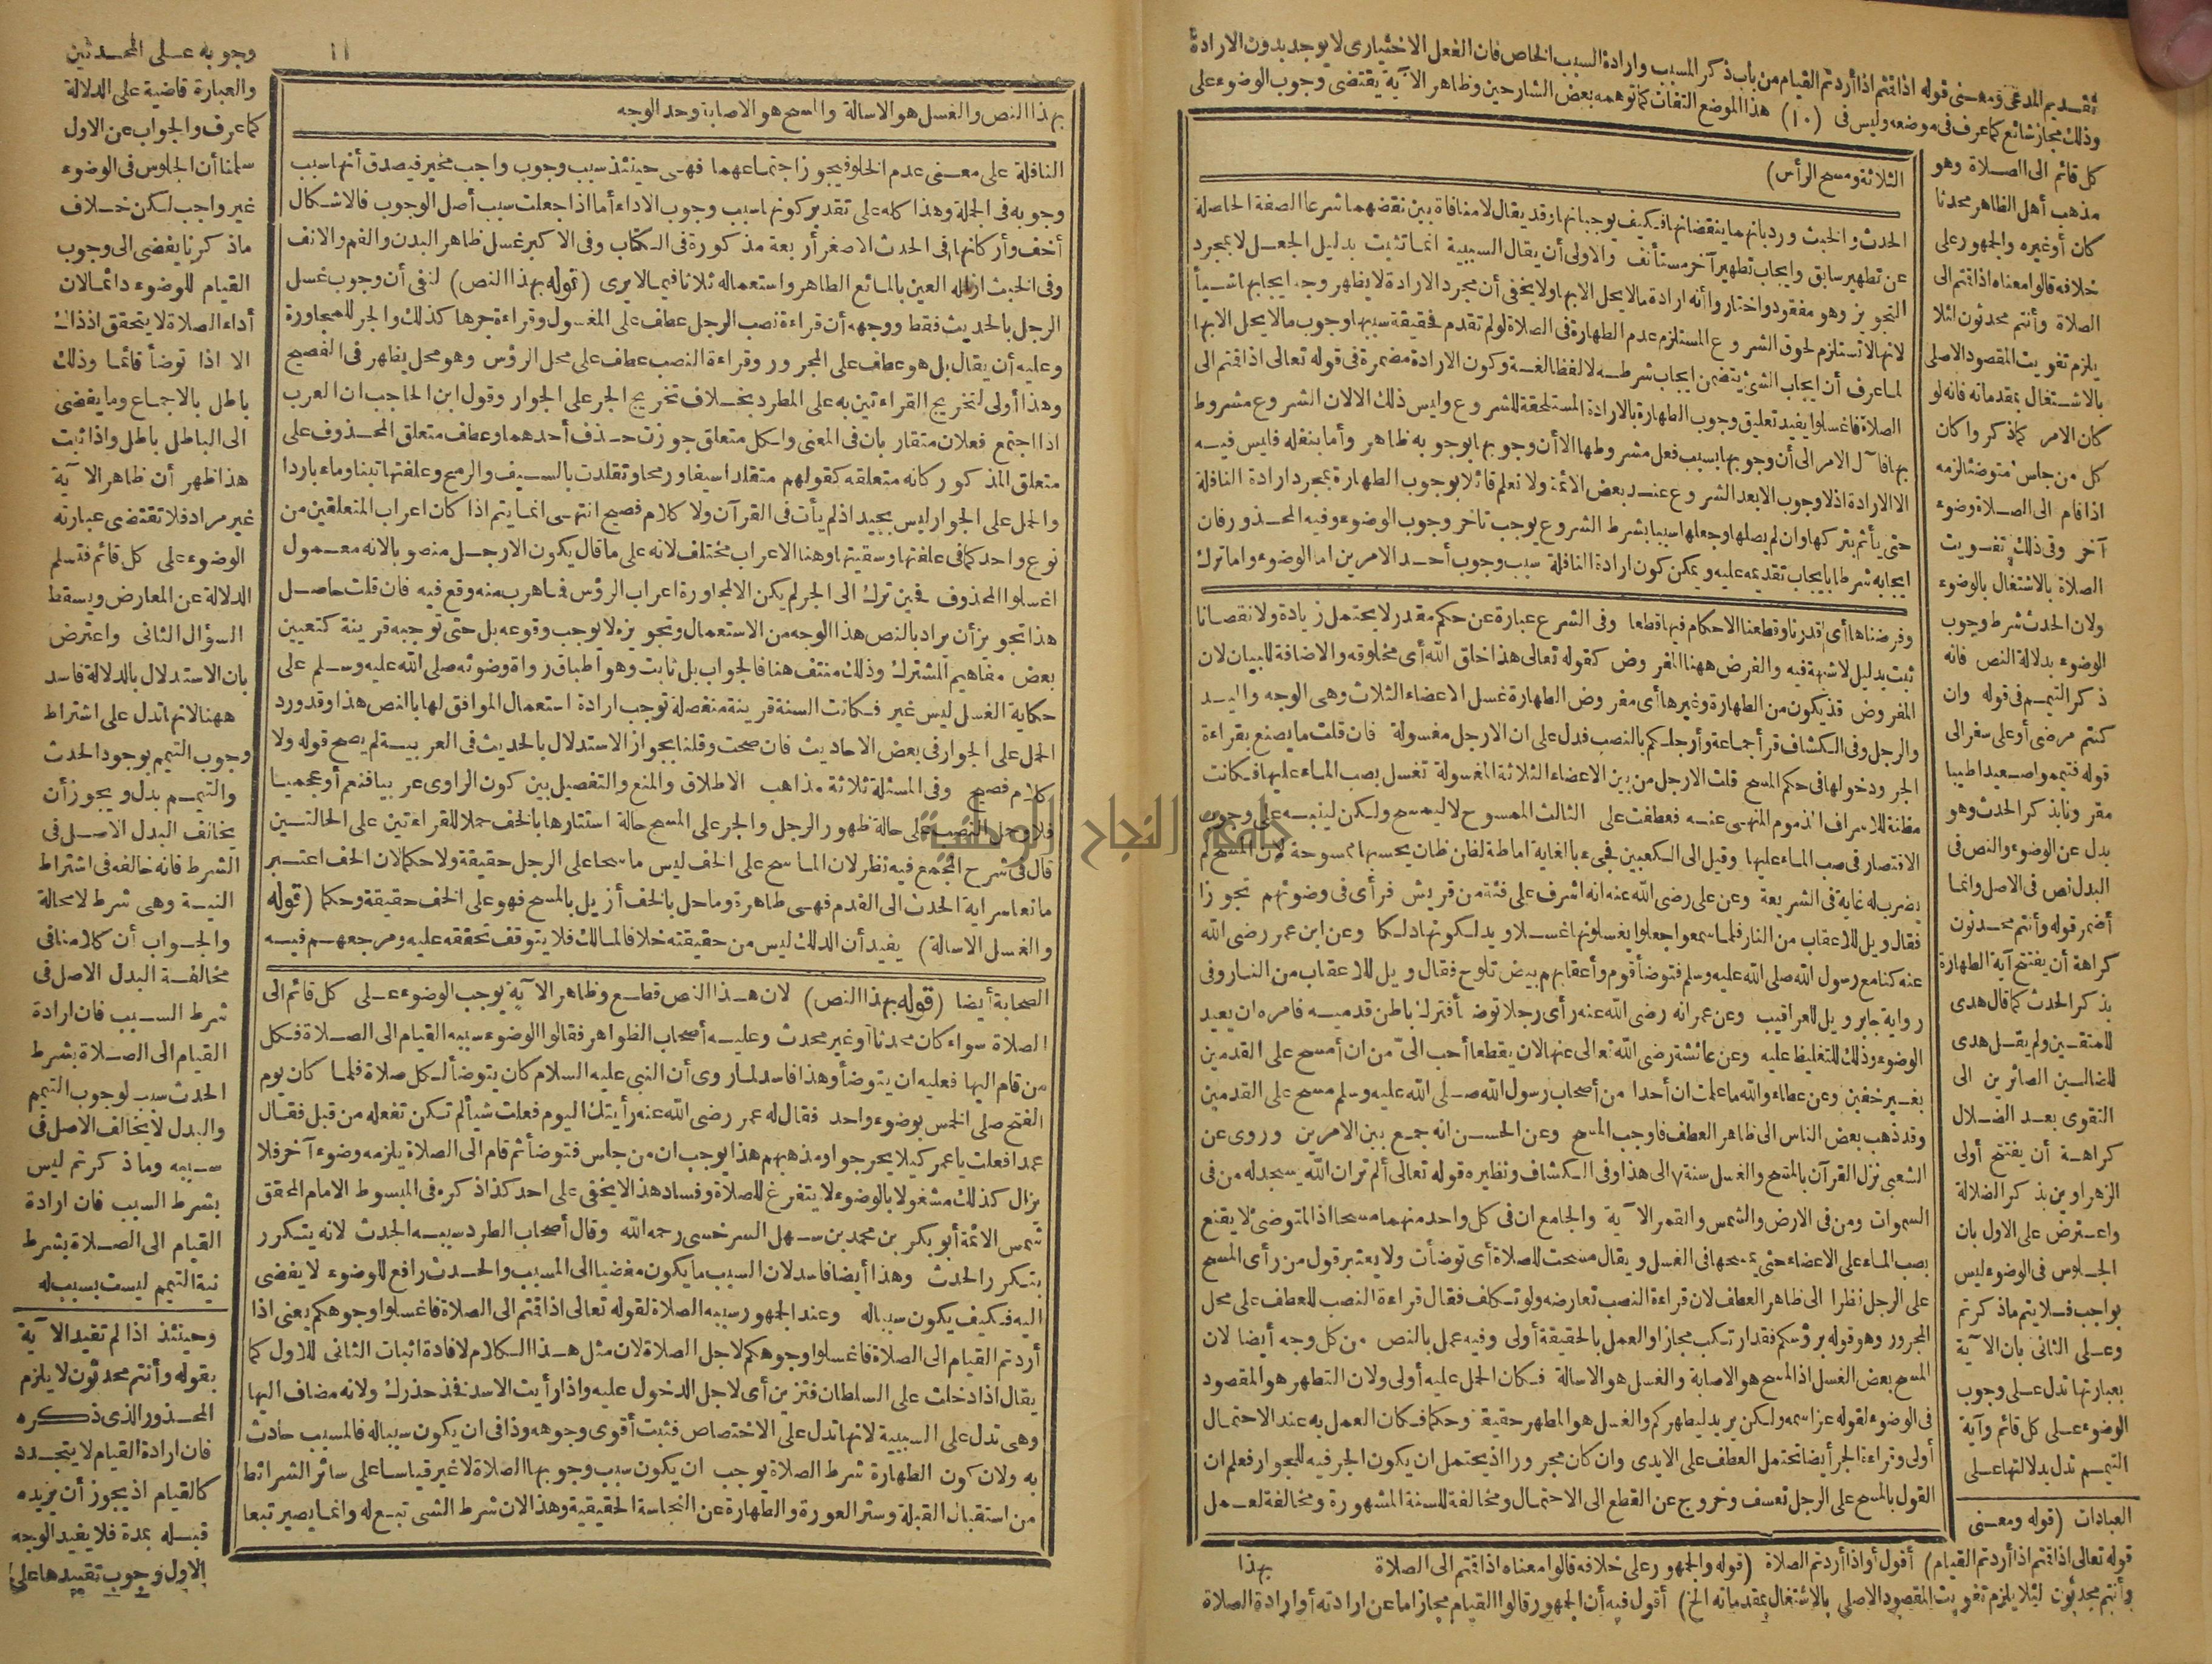 تقديم المدعى ومعنى قوله اذا قمتم اذا أردتم القيام من باب ذكر المسبب وارادة السبب الخاص فان الفعل الاختيارى لا يوجد بدون الارادة
وذلك مجاز شائع كما عرف فى موضعه وليس فى (١٠) هذا الموضع التفات كما توهمه بعض الشارحين وظاهر الآية يقتضى وجوب الوضوء على
كل قائم الى الصلاة وهو
مذهب أهل الظاهر محدثا
كان أو غيره والجمهور على
خلافه قالوا معناه اذا قمتم الى
الصلاة وأنتم محدثون لئلا
يلزم تفويت المقصود الاصلى
بالاشتغال بمقدماته فانه لو
كان الامر كما ذكروا كان
كل من جلس متوضئا لزمه
اذا قام الى الصلاة وضوء
آخر وفى ذلك تفويت
الصلاة بالاشتغال بالوضوء
ولان الحدث شرط وجوب
الوضوء بدلالة النص فانه
ذكر التيمم فى قوله وان
كنتم مرضى أو على سفر الى
قوله فتيمموا صعيدا طيبا
مقرونا بذكر الحدث وهو
بدل عن الوضوء والنص فى
البدل نص فى الاصل وانما
أضمر قوله وأنتم محدثون
كراهة أن يفتتح آية الطهارة
بذكر الحدث كما قال هدى
للمتقين ولم يقل هدى
للضالين الصائرين الى
التقوى بعد الضلال
كراهة أن يفتتح أولى
الزهراوين بذكر الضلالة
واعترض على الاول بان
الجلوس فى الوضوء ليس
بواجب فلا يتم ما ذكرتم
وعلى الثانى بان الآية
بعبارتها تدل على وجوب
الوضوء على كل قائم وآية
التيمم تدل بدلالتها على
الثلاثة ومسح الرأس)
الحدث والخبث ورد بانهما ينقضانها فكيف يوجبانها وقد يقال لا منافاة بين نقضهما شرعا الصفة الحاصلة
عن تطهير سابق وايجاب تطهير آخر مستأنف والاولى أن يقال السببية انما تثبت بدليل الجعل لا بمجرد
التجويز وهو مفقود واختاروا أنه ارادة ما لا يحل الا بها ولا يخفى أن مجرد الارادة لا يظهر وجه ايجابها شيأ
لانها لا تستلزم لحوق الشروع المستلزم عدم الطهارة فى الصلاة لو لم تقدم فحقيقة سببها وجوب ما لا يحل الا بها
لما عرف أن ايجاب الشئ يتضمن ايجاب شرطه لا لفظا لغة وكون الارادة مضمرة فى قوله تعالى اذا قمتم الى
الصلاة فاغسلوا يفيد تعليق وجوب الطهارة بالارادة المستلحقة للشروع وليس ذلك الا لان الشروع مشروط
بها فا ٓل الامر الى أن وجوبها بسبب فعل مشروطها الا أن وجوبها بوجوبه ظاهر وأما بنفله فليس فيه
الا الارادة اذ لا وجوب الا بعد الشروع عند بعض الأئمة ولا نعلم قائلا بوجوب الطهارة بمجرد ارادة النافلة
حتى يأثم بتركها وان لم يصلها وجعلها سببا بشرط الشروع يوجب تأخر وجوب الوضوء وفيه المحذور فان
ايجابه شرطا بايجاب تقديمه عليه ويمكن كون ارادة النافلة سبب وجوب أحد الامرين اما الوضوء واما ترك
وفرضناها أى قدرنا وقطعنا الاحكام فيها قطعا وفى الشرع عبارة عن حكم مقدر لا يحتمل زيادة ولا نقصانا
ثبت بدليل لا شبهة فيه والفرض ههنا المفروض كقوله تعالى هذا خلق الله أى مخلوقه والاضافة للبيان لان
المفروض قد يكون من الطهارة وغيرها أى مفروض الطهارة غسل الاعضاء الثلاث وهى الوجه واليد
والرجل وفى الكشاف قرأ جماعة وأرجلكم بالنصب فدل على ان الارجل مغسولة فان قلت ما يصنع بقراءة
الجر ودخولها فى حكم المسح قلت الارجل من بين الاعضاء الثلاثة المغسولة تغسل بصب الماء عليها فكانت
مظنة للاسراف المذموم المنهى عنه فعطفت على الثالث الممسوح لا لتمسح ولكن لينبه على وجوب
الاقتصار فى صب الماء عليها وقيل الى الكعبين فجىء بالغاية اماطة لظن ظان يحسبها ممسوحة لان المسح لم
يضرب له غاية فى الشريعة وعن على رضى الله عنه انه اشرف على فتية من قريش فرأى فى وضوئهم تجوزا
فقال ويل للاعقاب من النار فلما سمعوا جعلوا يغسلونها غسلا ويدلكونها دلكا وعن ابن عمر رضى الله
عنه كنا مع رسول الله صلى الله عليه وسلم فتوضأ قوم وأعقابهم بيض تلوح فقال ويل للاعقاب من النار وفى
رواية جابر ويل للعراقيب وعن عمر انه رضى الله عنه رأى رجلا توضأ فترك باطن قدميه فامره ان يعيد
الوضوء وذلك للتغليظ عليه وعن عائشة رضى الله تعالى عنها لان يقطعا أحب الىّ من ان أمسح على القدمين
بغير خفين وعن عطاء والله ما علمت ان أحدا من أصحاب رسول الله صلى الله عليه وسلم مسح على القدمين
وقد ذهب بعض الناس الى ظاهر العطف فاوجب المسح وعن الحسن انه جمع بين الامرين وروى عن
الشعبى نزل القرآن بالمسح والغسل سنة ٧ الى هذا وفى الكشاف ونظيره قوله تعالى ألم تر ان الله يسجد له من فى
السموات ومن فى الارض والشمس والقمر الآية والجامع ان فى كل واحد منهما مسحا اذ المتوضئ لا يقنع
بصب الماء على الاعضاء حتى يمسحها فى الغسل ويقال مسحت للصلاة أى توضأت ولا يعتبر قول من رأى المسح
على الرجل نظرا الى ظاهر العطف لان قراءة النصب تعارضه ولو تكلف فقال قراءة النصب للعطف على محل
المجرور وهو قوله برؤسكم فقد ارتكب مجازا والعمل بالحقيقة أولى وفيه عمل بالنص من كل وجه أيضا لان
المسح بعض الغسل اذ المسح هو الاصابة والغسل هو الاسالة فكان الحمل عليه أولى ولان التطهر هو المقصود
فى الوضوء لقوله عز اسمه ولكن يريد ليطهركم والغسل هو المطهر حقيقة وحكما فكان العمل به عند الاحتمال
أولى وقراءة الجر أيضا تحتمل العطف على الايدى وان كان مجرورا اذ يحتمل ان يكون الجر فيه للجوار فعلم ان
القول بالمسح على الرجل تعسف وخروج عن القطع الى الاحتمال ومخالفة للسنة المشهورة ومخالفة لعمل
العبادات (قوله ومعنى
قوله تعالى اذا قمتم اذا أردتم القيام) أقول أو اذا أردتم الصلاة (قوله والجمهور على خلافه قالوا معناه اذا قمتم الى الصلاة بهذا
وأنتم محدثون لئلا يلزم تفويت المقصود الاصلى بالاشتغال بمقدماته الخ) أقول فيه أن الجمهور قالوا القيام مجاز اما عن ارادته أو ارادة الصلاة
١١
بهذا النص والغسل هو الاسالة والمسح هو الاصابة وحد الوجه
النافلة على معنى عدم الخلو فيجوز اجتماعهما فهى حينئذ سبب وجوب واجب مخير فيصدق أنها سبب
وجوبه فى الجملة وهذا كله على تقدير كونها سبب وجوب الاداء أما اذا جعلت سبب أصل الوجوب فالاشكال
أخف وأركانها فى الحدث الاصغر أربعة مذكورة فى الكتاب وفى الاكبر غسل ظاهر البدن والفم والانف
وفى الخبث ازالة العين بالمائع الطاهر واستعماله ثلاثا فيما لا يرى (قوله بهذا النص) لنفى أن وجوب غسل
الرجل بالحديث فقط ووجهه أن قراءة نصب الرجل عطف على المغسول وقراءة جرها كذلك والجر للمجاورة
وعليه أن يقال بل هو عطف على المجرور وقراءة النصب عطف على محل الرؤس وهو محل يظهر فى الفصيح
وهذا أولى لتخريج القراءتين به على المطرد بخلاف تخريج الجر على الجوار وقول ابن الحاجب ان العرب
اذا اجتمع فعلان متقاربان فى المعنى ولكل متعلق جوزت حذف أحدهما وعطف متعلق المحذوف على
متعلق المذكور كانه متعلقه كقولهم متقلدا سيفا ورمحا وتقلدت بالسيف والرمح وعلفتها تبنا وماء باردا
والحمل على الجوار ليس بجيد اذ لم يأت فى القرآن ولا كلام فصيح انتهى انما يتم اذا كان اعراب المتعلقين من
نوع واحد كما فى علفتها وسقيتها وهنا الاعراب مختلف لانه على ما قال يكون الارجل منصوبا لانه معمول
اغسلوا المحذوف فحين ترك الى الجر لم يكن الا لمجاورة اعراب الرؤس فما هرب منه وقع فيه فان قلت حاصل
هذا تجويز أن يراد بالنص هذا الوجه من الاستعمال وتجويزه لا يوجب وقوعه بل حتى توجبه قرينة كتعيين
بعض مفاهيم المشترك وذلك منتف هنا فالجواب بل ثابت وهو اطباق رواة وضوئه صلى الله عليه وسلم على
حكاية الغسل ليس غير فكانت السنة قرينة منفصلة توجب ارادة استعمال الموافق لها بالنص هذا وقد ورد
الحمل على الجوار فى بعض الاحاديث فان صحت وقلنا بجواز الاستدلال بالحديث فى العربية لم يصح قوله ولا
كلام فصيح وفى المسئلة ثلاثة مذاهب الاطلاق والمنع والتفصيل بين كون الراوى عربيا فنعم أو عجميا
فلا وحمل النصب على حالة ظهور الرجل والجر على المسح حالة استتارها بالخف حملا للقراءتين على الحالتين
قال فى شرح المجمع فيه نظر لان الماسح على الخف ليس ماسحا على الرجل حقيقة ولا حكما لان الخف اعتبر
مانعا سراية الحدث الى القدم فهى طاهرة وما حل بالخف أزيل بالمسح فهو على الخف حقيقة وحكما (قوله
والغسل الاسالة) يفيد أن الدلك ليس من حقيقته خلافا لمالك فلا يتوقف تحققه عليه ومرجعهم فيه
الصحابة أيضا (قوله بهذا النص) لان هذا النص قطع وظاهر الآية يوجب الوضوء على كل قائم الى
الصلاة سواء كان محدثا أو غير محدث وعليه أصحاب الظواهر فقالوا الوضوء سببه القيام الى الصلاة فكل
من قام اليها فعليه ان يتوضأ وهذا فاسد لما روى أن النبى عليه السلام كان يتوضأ لكل صلاة فلما كان يوم
الفتح صلى الخمس بوضوء واحد فقال له عمر رضى الله عنه رأيتك اليوم فعلت شيأ لم تكن تفعله من قبل فقال
عمدا فعلت يا عمر كيلا يحرجوا ومذهبهم هذا يوجب ان من جلس فتوضأ ثم قام الى الصلاة يلزمه وضوء آخر فلا
يزال كذلك مشغولا بالوضوء لا يتفرغ للصلاة وفساد هذا لا يخفى على احد كذا ذكره فى المبسوط الامام المحقق
شمس الائمة أبو بكر بن محمد بن سهل السرخسى رحمه الله وقال أصحاب الطرد سببه الحدث لانه يتكرر
بتكرر الحدث وهذا أيضا فاسد لان السبب ما يكون مفضيا الى المسبب والحدث رافع للوضوء لا يفضى
اليه فكيف يكون سببا له وعند الجمهور سببه الصلاة لقوله تعالى اذا قمتم الى الصلاة فاغسلوا وجوهكم يعنى اذا
أردتم القيام الى الصلاة فاغسلوا وجوهكم لاجل الصلاة لان مثل هذا الكلام لافادة اثبات الثانى للاول كما
يقال اذا دخلت على السلطان فتزين أى لاجل الدخول عليه واذا رأيت الاسد فخذ حذرك ولانه مضاف اليها
وهى تدل على السببية لانها تدل على الاختصاص فثبت أقوى وجوهه وذا فى ان يكون سببا له فالمسبب حادث
به ولان كون الطهارة شرط الصلاة يوجب ان يكون سبب وجوبها الصلاة لا غير قياسا على سائر الشرائط
من استقبال القبلة وستر العورة والطهارة عن النجاسة الحقيقية وهذا لان شرط الشىء تبع له وانما يصير تبعا
وجوبه على المحدثين
والعبارة قاضية على الدلالة
كما عرف والجواب عن الاول
سلمنا أن الجلوس فى الوضوء
غير واجب لكن خلاف
ما ذكرنا يفضى الى وجوب
القيام للوضوء دائما لان
أداء الصلاة لا يتحقق اذ ذاك
الا اذا توضأ قائما وذلك
باطل بالاجماع وما يفضى
الى الباطل باطل واذا ثبت
هذا ظهر أن ظاهر الآية
غير مراد فلا تقتضى عبارته
الوضوء على كل قائم فتسلم
الدلالة عن المعارض ويسقط
السؤال الثانى واعترض
بان الاستدلال بالدلالة فاسد
ههنا لانها تدل على اشتراط
وجوب التيمم بوجود الحدث
والتيمم بدل ويجوز أن
يخالف البدل الاصل فى
الشرط فانه خالفه فى اشتراط
النية وهى شرط لا محالة
والجواب أن كلامنا فى
مخالفة البدل الاصل فى
شرط السبب فان ارادة
القيام الى الصلاة بشرط
الحدث سبب لوجوب التيمم
والبدل لا يخالف الاصل فى
سببه وما ذكرتم ليس
بشرط السبب فان ارادة
القيام الى الصلاة بشرط
نية التيمم ليست بسبب له
وحينئذ اذا لم تفيد الآية
بقوله وأنتم محدثون لا يلزم
المحذور الذى ذكره
فان ارادة القيام لا يتجدد
كالقيام اذ يجوز أن يريده
قبله بمدة فلا يفيد الوجه
الاول وجوب تقييدها على
جامعة النجاح الوطنية